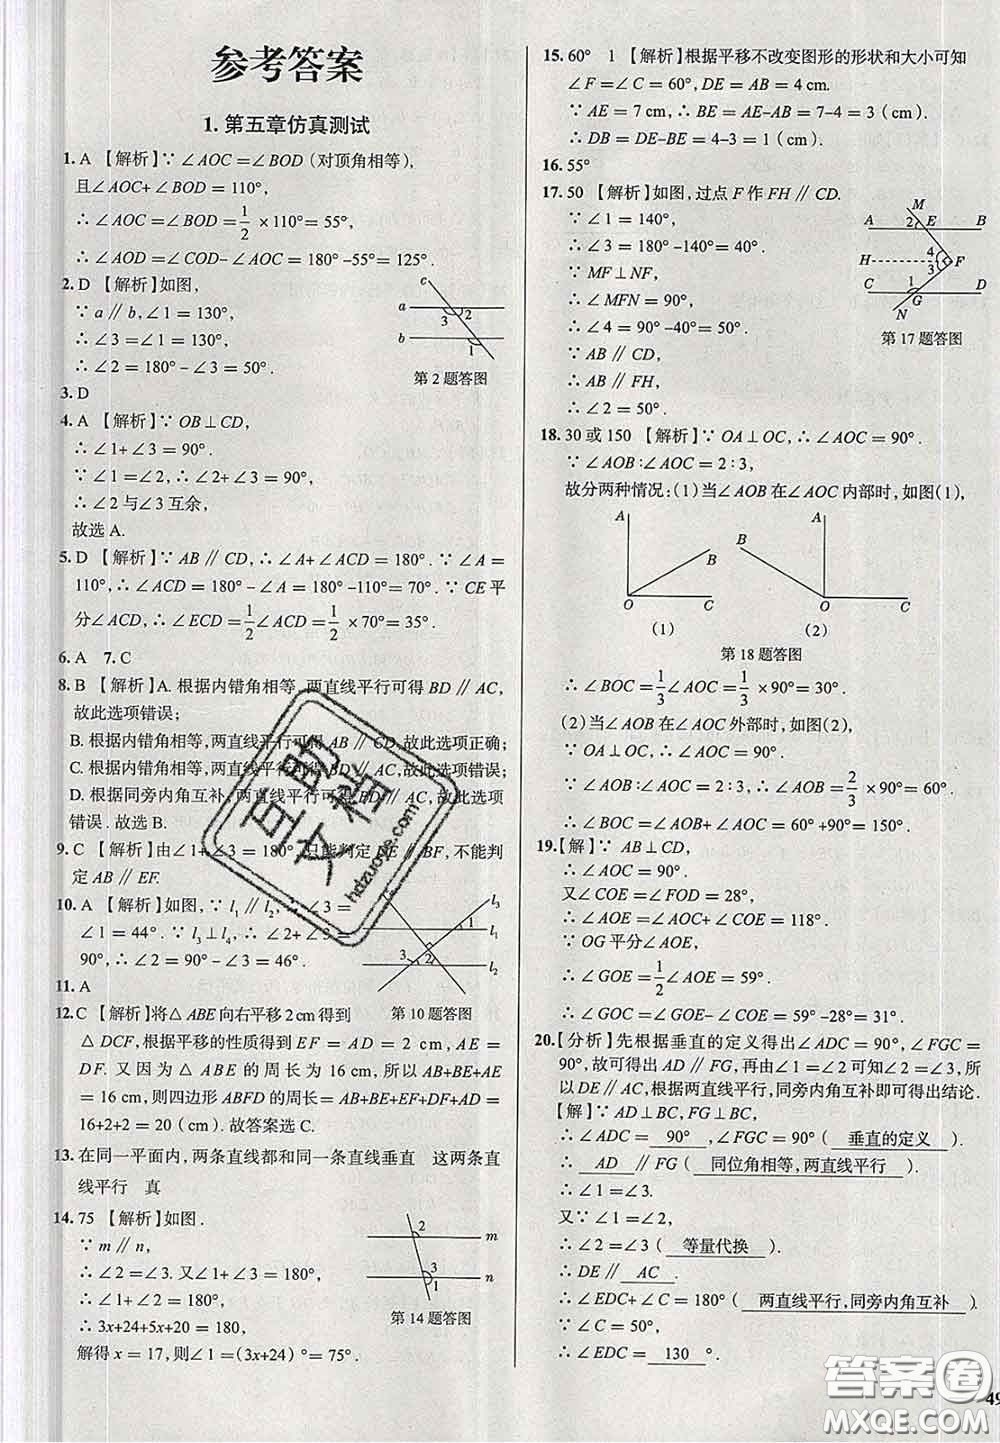 参考答案
1.第五章仿真测试
1. A 【解析】∵ ∠AOC=∠BOD (对顶角相等),
且∠AOC+∠BOD=110°,
∴ ∠AOC=∠BOD=1/2×110°=55°,
∴ ∠AOD=∠COD-∠AOC=180°-55°=125°.
2. D 【解析】如图,
∵ a∥b,∠1=130°,
∴ ∠3=∠1=130°,
∴ ∠2=180°-∠3=50°.
c
a
b
3 2
1
第2题答图
3. D
4. A 【解析】∵ OB⊥CD,
∴ ∠1+∠3=90°.
∵ ∠1=∠2,∴ ∠2+∠3=90°,
∴ ∠2与∠3互余,
故选A.
5. D 【解析】∵ AB∥CD,∴ ∠A+∠ACD=180°. ∵ ∠A=
110°,∴ ∠ACD=180°-∠A=180°-110°=70°. ∵ CE平
分∠ACD,∴ ∠ECD=1/2∠ACD=1/2×70°=35°.
6. A 7. C
8. B 【解析】A. 根据内错角相等,两直线平行可得BD∥AC,
故此选项错误;
B. 根据内错角相等,两直线平行可得AB∥CD,故此选项正确;
C. 根据内错角相等,两直线平行可得BD∥AC,故此选项错误;
D. 根据同旁内角互补,两直线平行可得BD∥AC,故此选项
错误.故选B.
9. C 【解析】由∠1+∠3=180°,只能判定DE∥BF,不能判
定AB∥EF.
10. A 【解析】如图,∵ l1∥l2,∴ ∠3=
∠1=44°. ∵ l3⊥l4,∴ ∠2+∠3=
90°,∴ ∠2=90°-∠3=46°.
l3
1
l1
3 2
l2
第10题答图
11. A
12. C 【解析】将△ABE向右平移2 cm得到
△DCF,根据平移的性质得到EF=AD=2 cm,AE=
DF. 又因为△ABE的周长为16 cm,所以AB+BE+AE
=16 cm,则四边形ABFD的周长=AB+BE+EF+DF+AD=
16+2+2=20 (cm). 故答案选C.
13. 在同一平面内,两条直线都和同一条直线垂直 这两条直
线平行 真
14. 75 【解析】如图.
∵ m∥n,
∴ ∠2=∠3. 又∵ ∠1+∠3=180°,
∴ ∠1+∠2=180°,
∴ 3x+24+5x+20=180,
解得x=17,则∠1=(3x+24)°=75°.
2
m
3
1
n
第14题答图
15. 60° 1 【解析】根据平移不改变图形的形状和大小可知
∠F=∠C=60°,DE=AB=4 cm.
∵ AE=7 cm,∴ BE=AE-AB=7-4=3 (cm),
∴ DB=DE-BE=4-3=1 (cm).
16. 55°
17. 50 【解析】如图,过点F作FH∥CD.
∵ ∠1=140°,
∴ ∠3=180°-140°=40°.
∵ MF⊥NF,
∴ ∠MFN=90°,
∴ ∠4=90°-40°=50°.
∵ AB∥CD,
∴ AB∥FH,
∴ ∠2=∠4=50°.
M
A 2 E B
4
H F
3
C 1 D
G
N
第17题答图
18. 30或150 【解析】∵ OA⊥OC,∴ ∠AOC=90°.
∵ ∠AOB∶∠AOC=2∶3,
故分两种情况:(1)当∠AOB在∠AOC内部时,如图(1),
A
B
O C
(1)
A
B
O C
(2)
第18题答图
∴ ∠BOC=1/3∠AOC=1/3×90°=30°.
(2)当∠AOB在∠AOC外部时,如图(2),
∵ OA⊥OC,∴ ∠AOC=90°.
∵ ∠AOB∶∠AOC=2∶3,∴ ∠AOB=2/3×90°=60°.
∴ ∠BOC=∠AOB+∠AOC=60°+90°=150°.
19.【解】∵ AB⊥CD,
∴ ∠AOC=90°.
又∠COE=∠FOD=28°,
∴ ∠AOE=∠AOC+∠COE=118°.
∵ OG平分∠AOE,
∴ ∠GOE=1/2∠AOE=59°.
∴ ∠GOC=∠GOE-∠COE=59°-28°=31°.
20.【分析】先根据垂直的定义得出∠ADC=90°,∠FGC=
90°,故可得出AD∥FG,再由∠1=∠2可得∠2=∠3,所
以DE∥AC,根据两直线平行,同旁内角互补即可得出结论.
【解】∵ AD⊥BC,FG⊥BC,
∴ ∠ADC= 90° ,∠FGC=90°( 垂直的定义 ).
∴ AD ∥FG( 同位角相等,两直线平行 ).
∴ ∠1=∠3.
又∵ ∠1=∠2,
∴ ∠3=∠2( 等量代换 ).
∴ DE∥ AC .
∴ ∠EDC+∠C=180°( 两直线平行,同旁内角互补 ).
∵ ∠C=50°,
∴ ∠EDC= 130 °.
49
互助文档
hdzuoye.com
答案圈
MXQE.COM